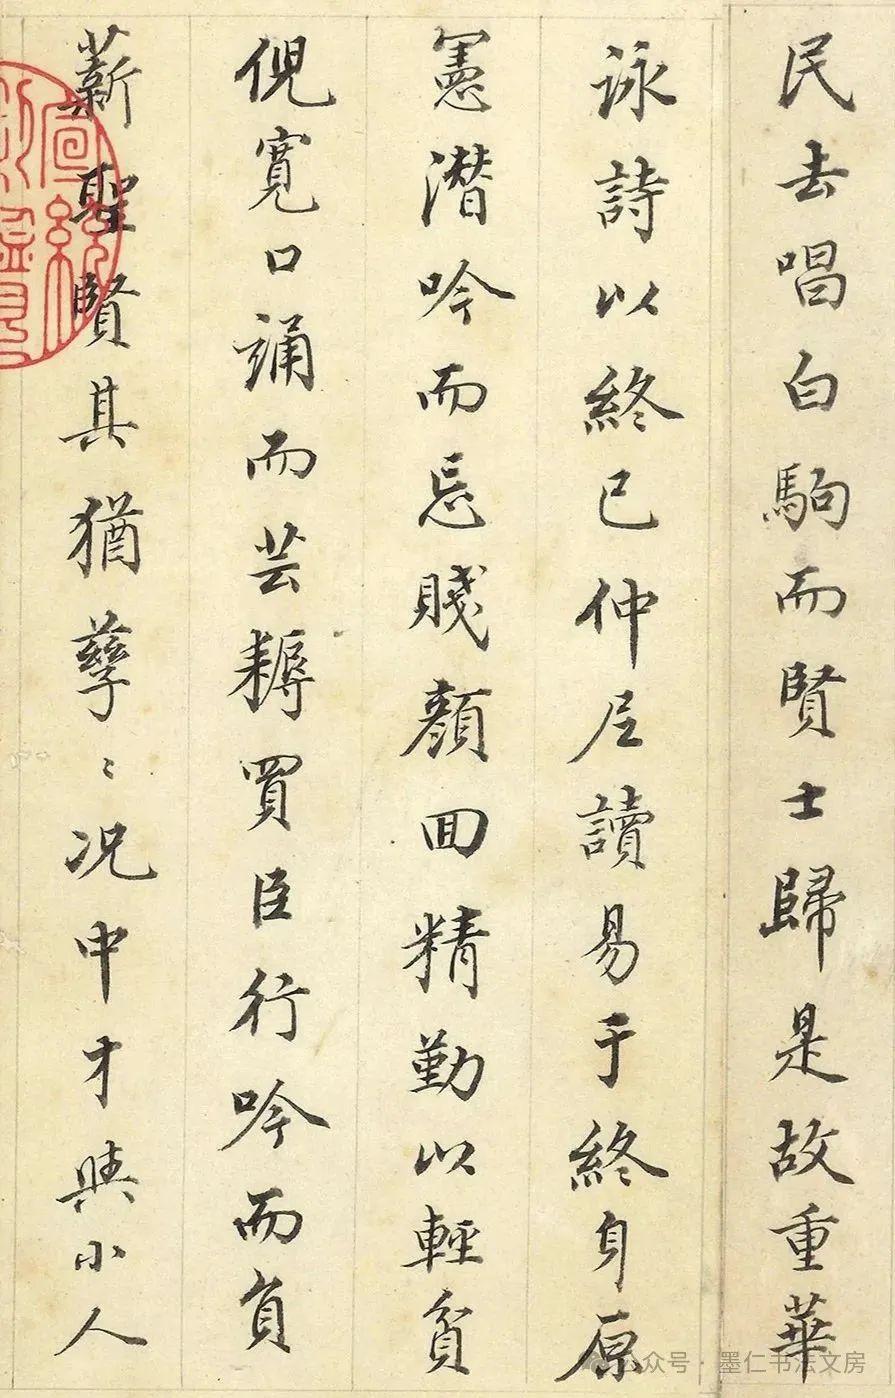 民去唱白駒而賢士歸是故重華
詠詩以終已仲尼讀易于終身原
憲潜吟而忘賤顏回精勤以輕貧
倪寬口誦而芸耨買臣行吟而負
薪聖賢其猶孳〻况中才與小人
公众号·墨仁书法文房